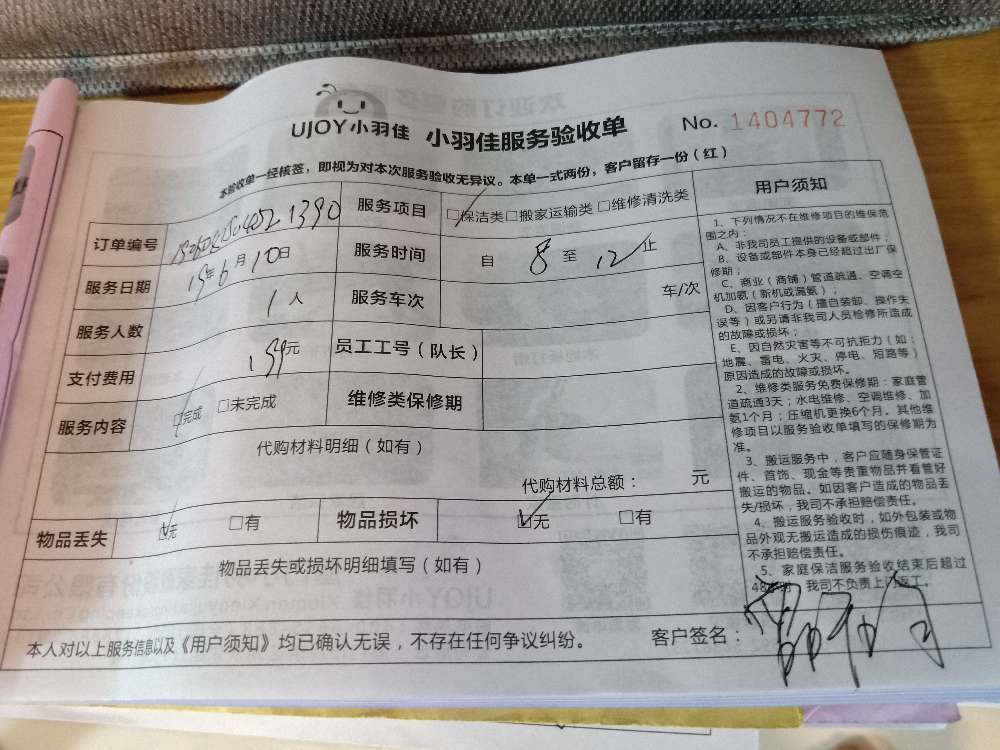 UJOY小羽佳 小羽佳服务验收单 No. 1404772
本验收单一经核签，即视为对本次服务验收无异议。本单一式两份，客户留存一份（红）
订单编号
服务项目 □保洁类 □搬家运输类 □维修清洗类
服务日期 19年6月10日
服务时间 自 8 至 12 止
服务人数 1人
服务车次 车/次
支付费用 159元
员工工号（队长）
服务内容 □完成 □未完成
维修类保修期
代购材料明细（如有）
代购材料总额： 元
物品丢失 □无 □有 物品损坏 □无 □有
物品丢失或损坏明细填写（如有）
本人对以上服务信息以及《用户须知》均已确认无误，不存在任何争议纠纷。 客户签名：
用户须知
1、下列情况不在维修项目的维保范
围之内：
A、非我司员工提供的设备或部件；
B、设备或部件本身已经超过出厂保
修期；
C、商业（商铺）管道疏通、空调空
机加氨（新机或漏氨）；
D、因客户行为（擅自装卸、操作失
误等）或另请非我司人员检修所造成
的故障或损坏；
E、因自然灾害等不可抗拒力（如：
地震、雷电、火灾、停电、短路等）
原因造成的故障或损坏。
2、维修类服务免费保修期：家庭管
道疏通3天；水电维修、空调维修、加
氨1个月；压缩机更换6个月。其他维
修项目以服务验收单填写的保修期为
准。
3、搬运服务中，客户应随身保管证
件、首饰、现金等贵重物品并看管好
搬运的物品。如因客户造成的物品丢
失/损坏，我司不承担赔偿责任。
4、搬运服务验收时，如外包装或物
品外观无搬运造成的损伤痕迹，我司
不承担赔偿责任。
5、家庭保洁服务验收结束后超过
48 ，我司不负责上门返工。